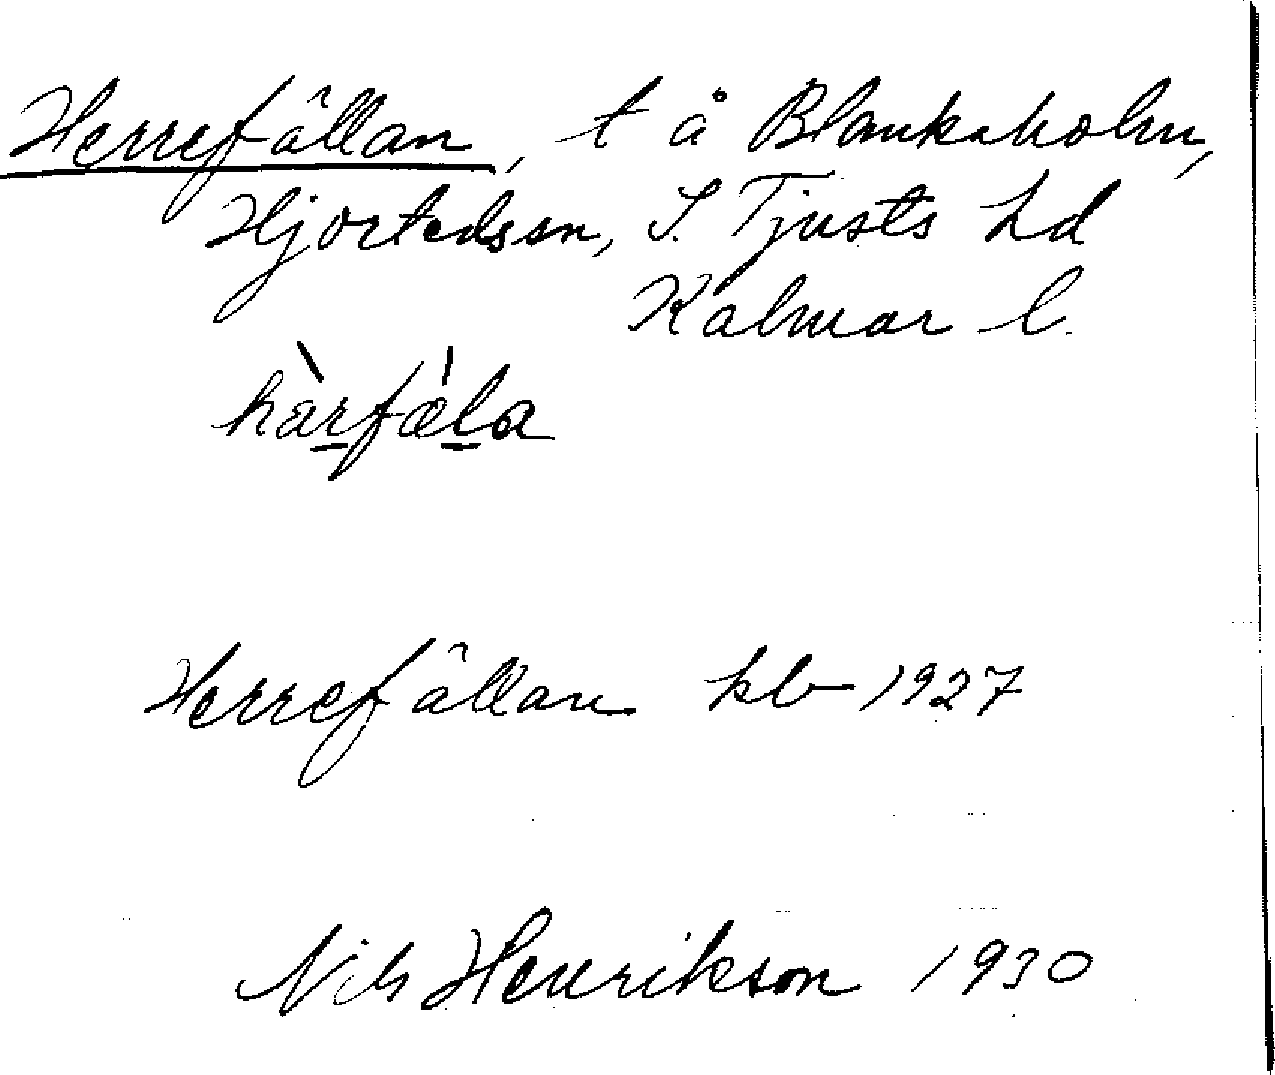 Herrefällan, t å Blankaholm,
Hjorteds sn, S. Tjusts hd
Kalmar l.
hàrfæ̀la
Herrefällan kb 1927
Nils Henrikson 1930